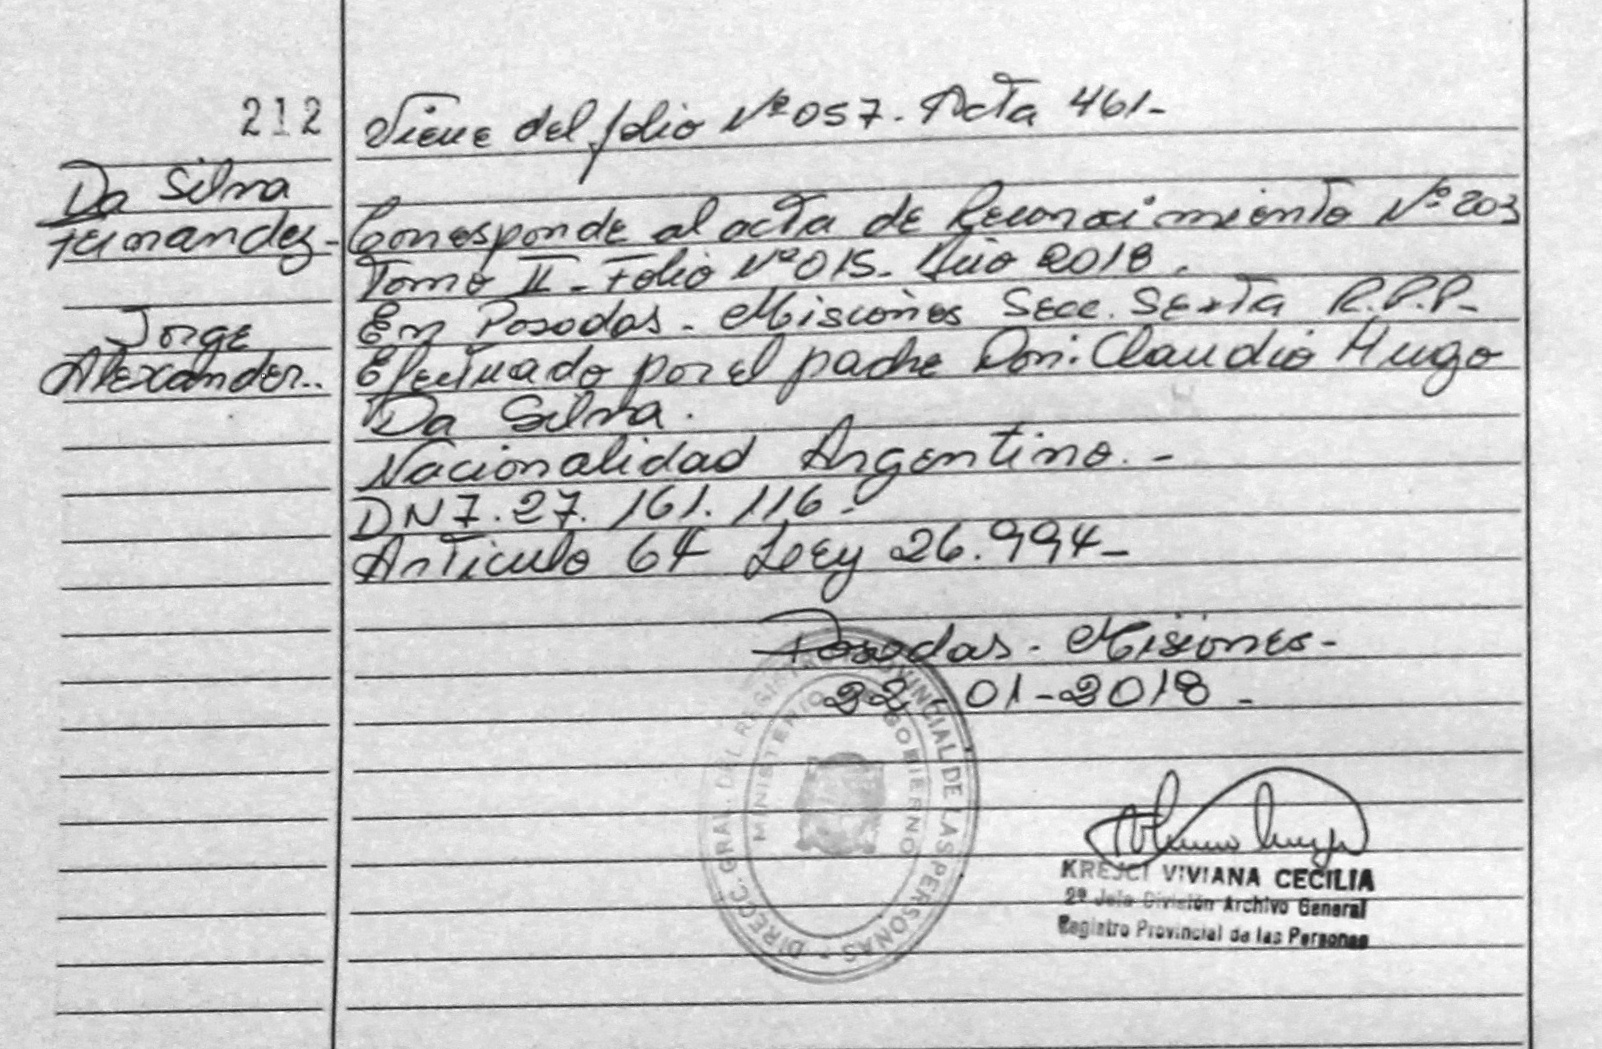 212
Viene del folio Nº 057. Acta 461-
Da Silva
Fernandez-
Corresponde al acta de Reconocimiento Nº 203
Tomo II - Folio Nº 015. Año 2018.
Jorge
Alexander..
En Posadas - Misiones Secc. Sexta R.P.P-
Efectuado por el padre Don: Claudio Hugo
Da Silva.
Nacionalidad Argentino.-
DNI. 27.161.116-
Articulo 64 Ley 26.994-
Posadas - Misiones-
22-01-2018-
DIRECC. GRAL. DEL REGISTRO PROVINCIAL DE LAS PERSONAS -
MINISTERIO DE GOBIERNO
KREJCI VIVIANA CECILIA
2º Jefe División Archivo General
Registro Provincial de las Personas